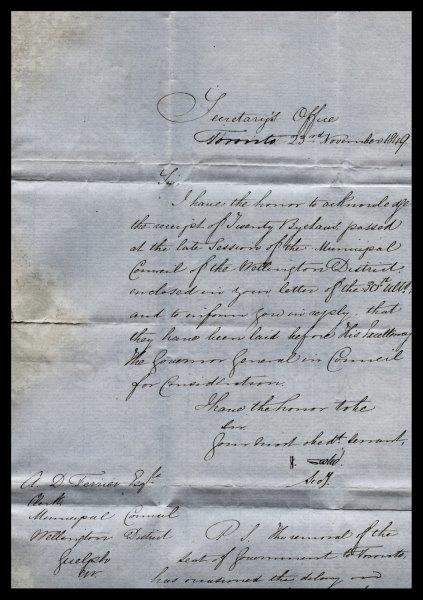 Secretary's Office
Toronto 23rd November 1849.
Sir
I have the honor to acknowledge
the receipt of Twenty Byelaws passed
at the late Session of the Municipal
Council of the Wellington District,
enclosed in your letter of the 30th ulto,
and to inform you in reply, that
they have been laid before His Excellency
the Governor General in Council
for Consideration.
I have the honor to be
Sir
Your most obedt. servant,
Secy.
A. D. Ferrier Esqre
Clerk
Municipal Council
Wellington District
Guelph
CW
P. S. The removal of the
seat of Government to Toronto
has occasioned the delay